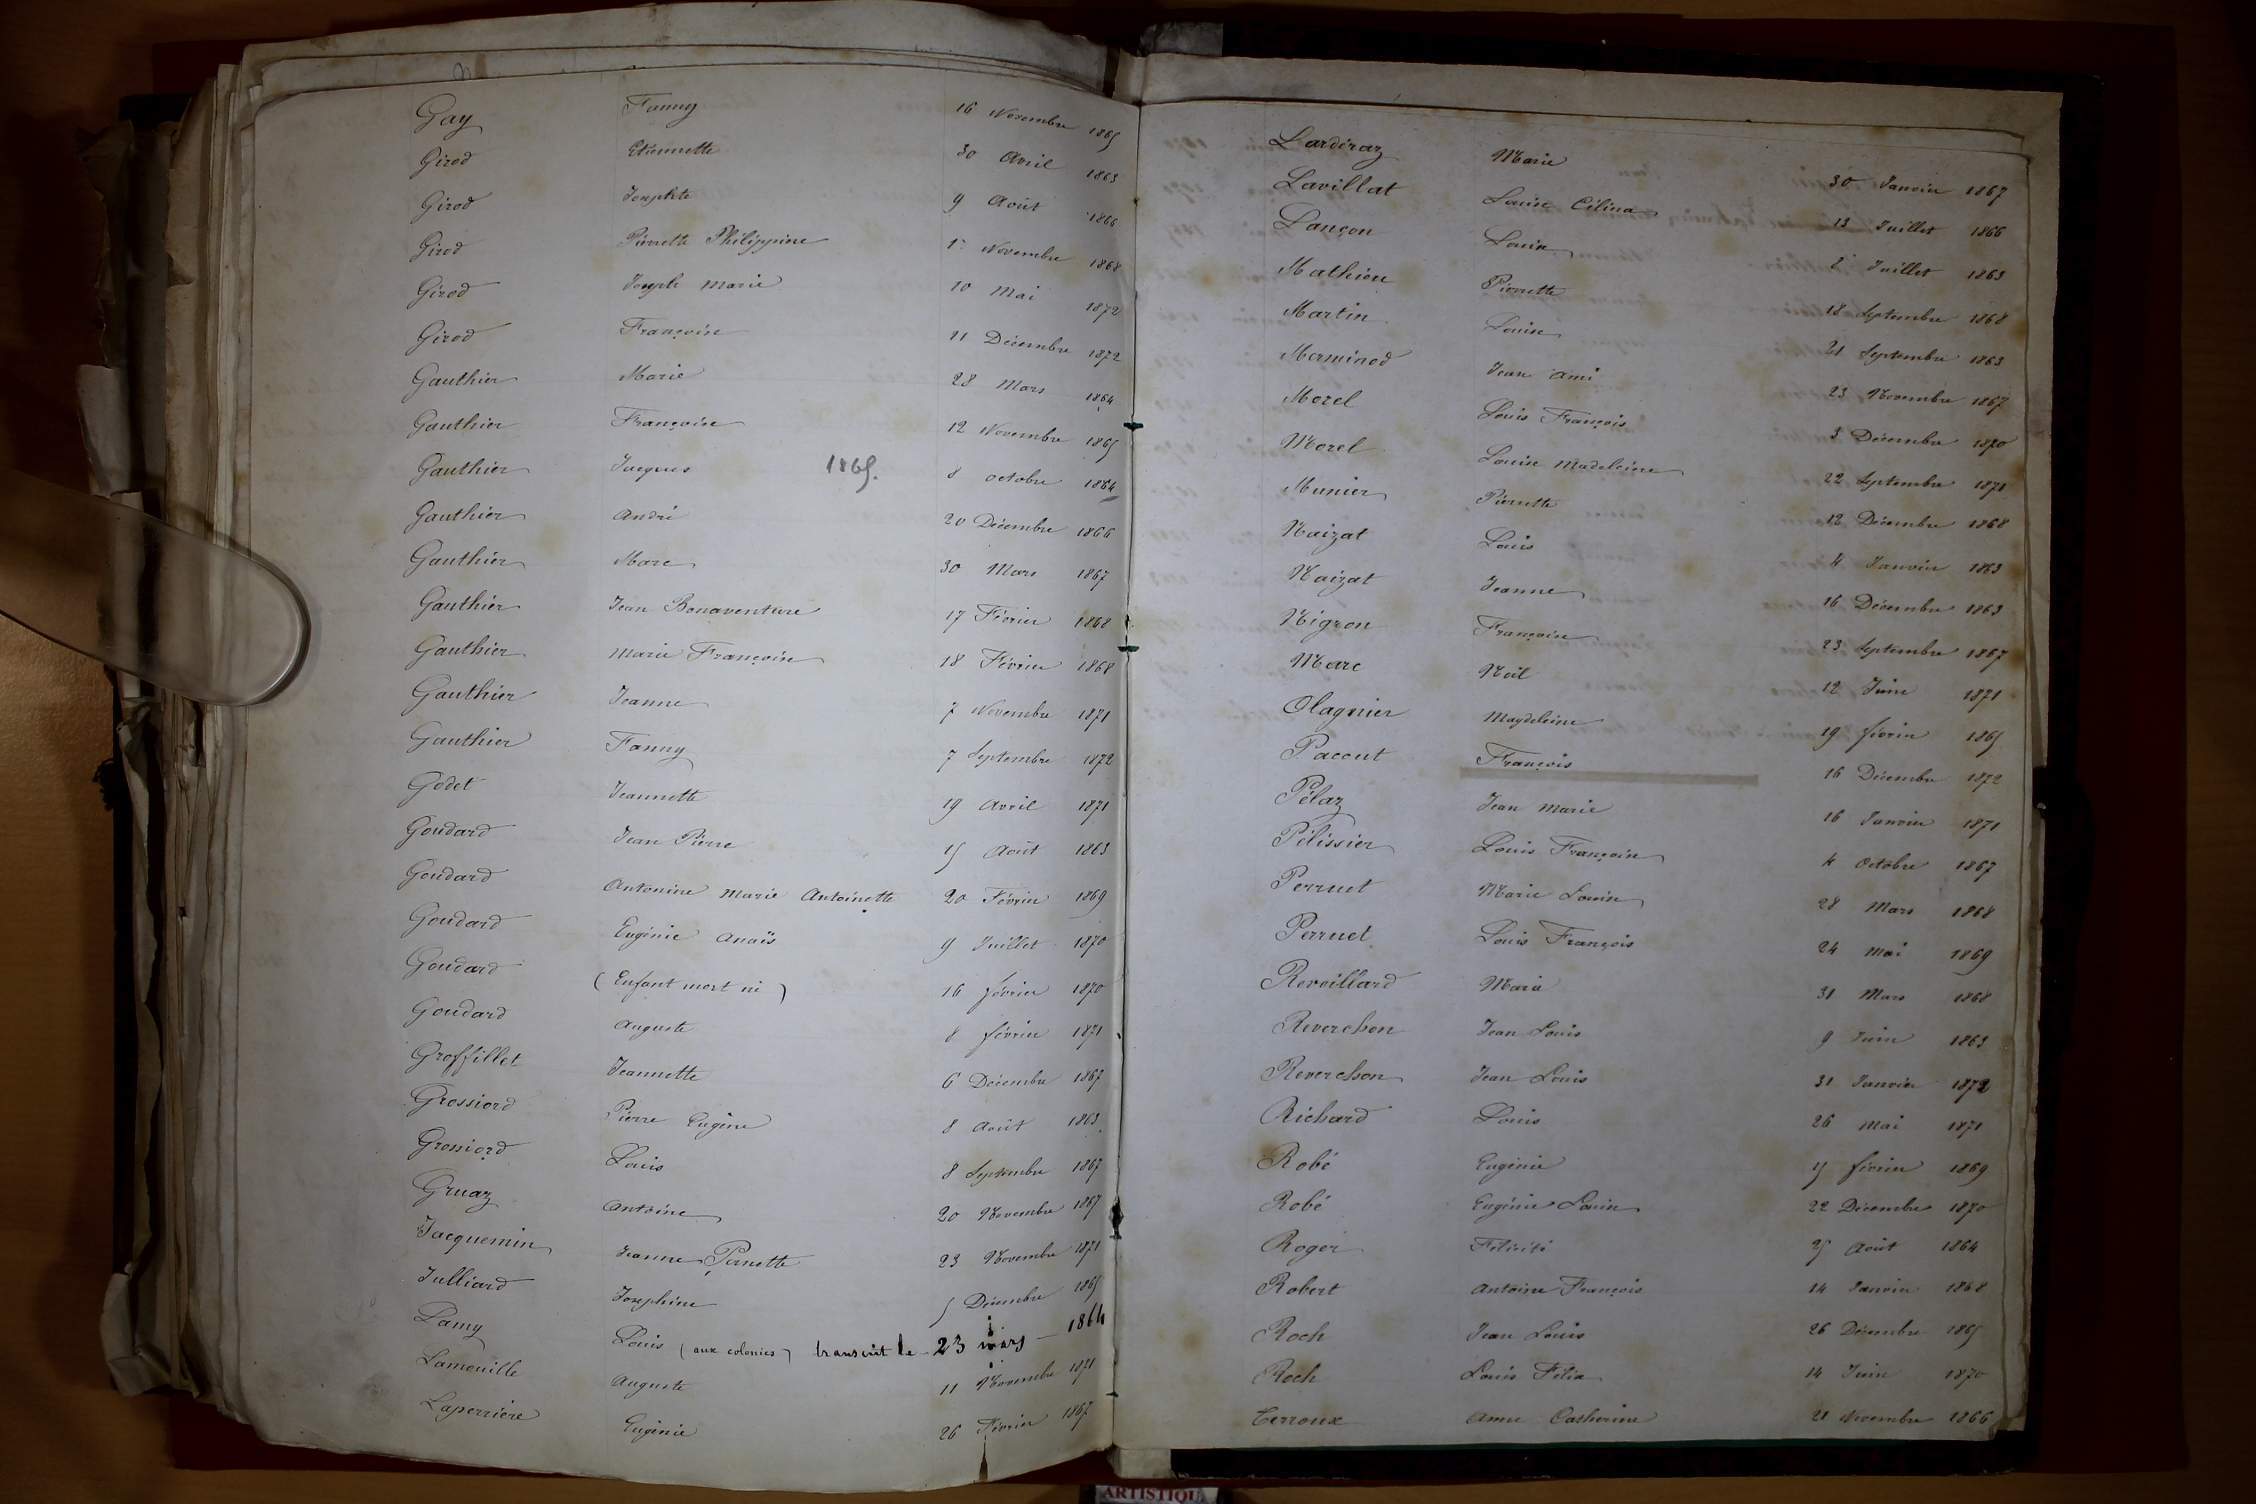 Gay Fanny 16 Novembre 1865
Girod Etiennette 30 Avril 1863
Girod Josephte 9 Août 1866
Girod Pierrette Philippine 1er Novembre 1868
Girod Joseph Marie 10 Mai 1872
Girod Françoise 11 Décembre 1872
Gauthier Marie 28 Mars 1864
Gauthier Françoise 12 Novembre 1865
Gauthier Jacques 1865. 8 octobre 1864
Gauthier André 20 Décembre 1866
Gauthier Marc 30 Mars 1867
Gauthier Jean Bonaventure 17 Février 1868
Gauthier Marie Françoise 18 Février 1868
Gauthier Jeanne 7 Novembre 1871
Gauthier Fanny 7 Septembre 1872
Godet Jeannette 19 Avril 1871
Goudard Jean Pierre 15 Août 1863
Goudard Antonine Marie Antoinette 20 Février 1869
Goudard Eugénie Anaïs 9 Juillet 1870
Goudard (Enfant mort né) 16 février 1870
Goudard Auguste 8 février 1871
Groffillet Jeannette 6 Décembre 1867
Grossiord Pierre Eugène 8 Août 1863
Grossiord Louis 8 Septembre 1867
Gruaz Antoine 20 Novembre 1867
Jacquemin Jeanne Pernette 23 Novembre 1871
Julliard Josephine 5 Décembre 1865
Lamy Louis (aux colonies) transcrit le 23 mars 1864
Lamouille Auguste 11 Novembre 1871
Laperrière Eugénie 26 Février 1867
Lardéraz Marie 30 Janvier 1867
Lavillat Louise Célina 13 Juillet 1866
Lançon Louise Juillet 1863
Mathieu Pierrette 18 Septembre 1868
Martin Louise 21 Septembre 1863
Merminod Jean Ami 23 Novembre 1867
Morel Louis François 3 Décembre 1870
Morel Louise Madeleine 22 Septembre 1871
Munier Pierrette 12 Décembre 1868
Naizat Louis 4 Janvier 1863
Naizat Jeanne 16 Décembre 1863
Nigron Françoise 23 Septembre 1867
Marc Noël 12 Juin 1871
Olagnier Magdeleine 19 février 1865
Pacout François 16 Décembre 1872
Pélaz Jean Marie 16 Janvier 1871
Pélissier Louis Françoise 4 Octobre 1867
Perruet Marie Louise 28 Mars 1868
Perruet Louis François 24 Mai 1869
Reveillard Marie 31 Mars 1868
Reverchon Jean Louis 9 Juin 1863
Reverchon Jean Louis 31 Janvier 1872
Richard Louis 26 Mai 1871
Robé Eugénie 15 février 1869
Robé Eugénie Louise 22 Décembre 1870
Roger Félicité 25 Août 1864
Robert Antoine François 14 Janvier 1868
Roch Jean Louis 26 Décembre 1865
Roch Louis Félix 14 Juin 1870
Terroux Anne Catherine 21 Novembre 1866
ARTISTIQU